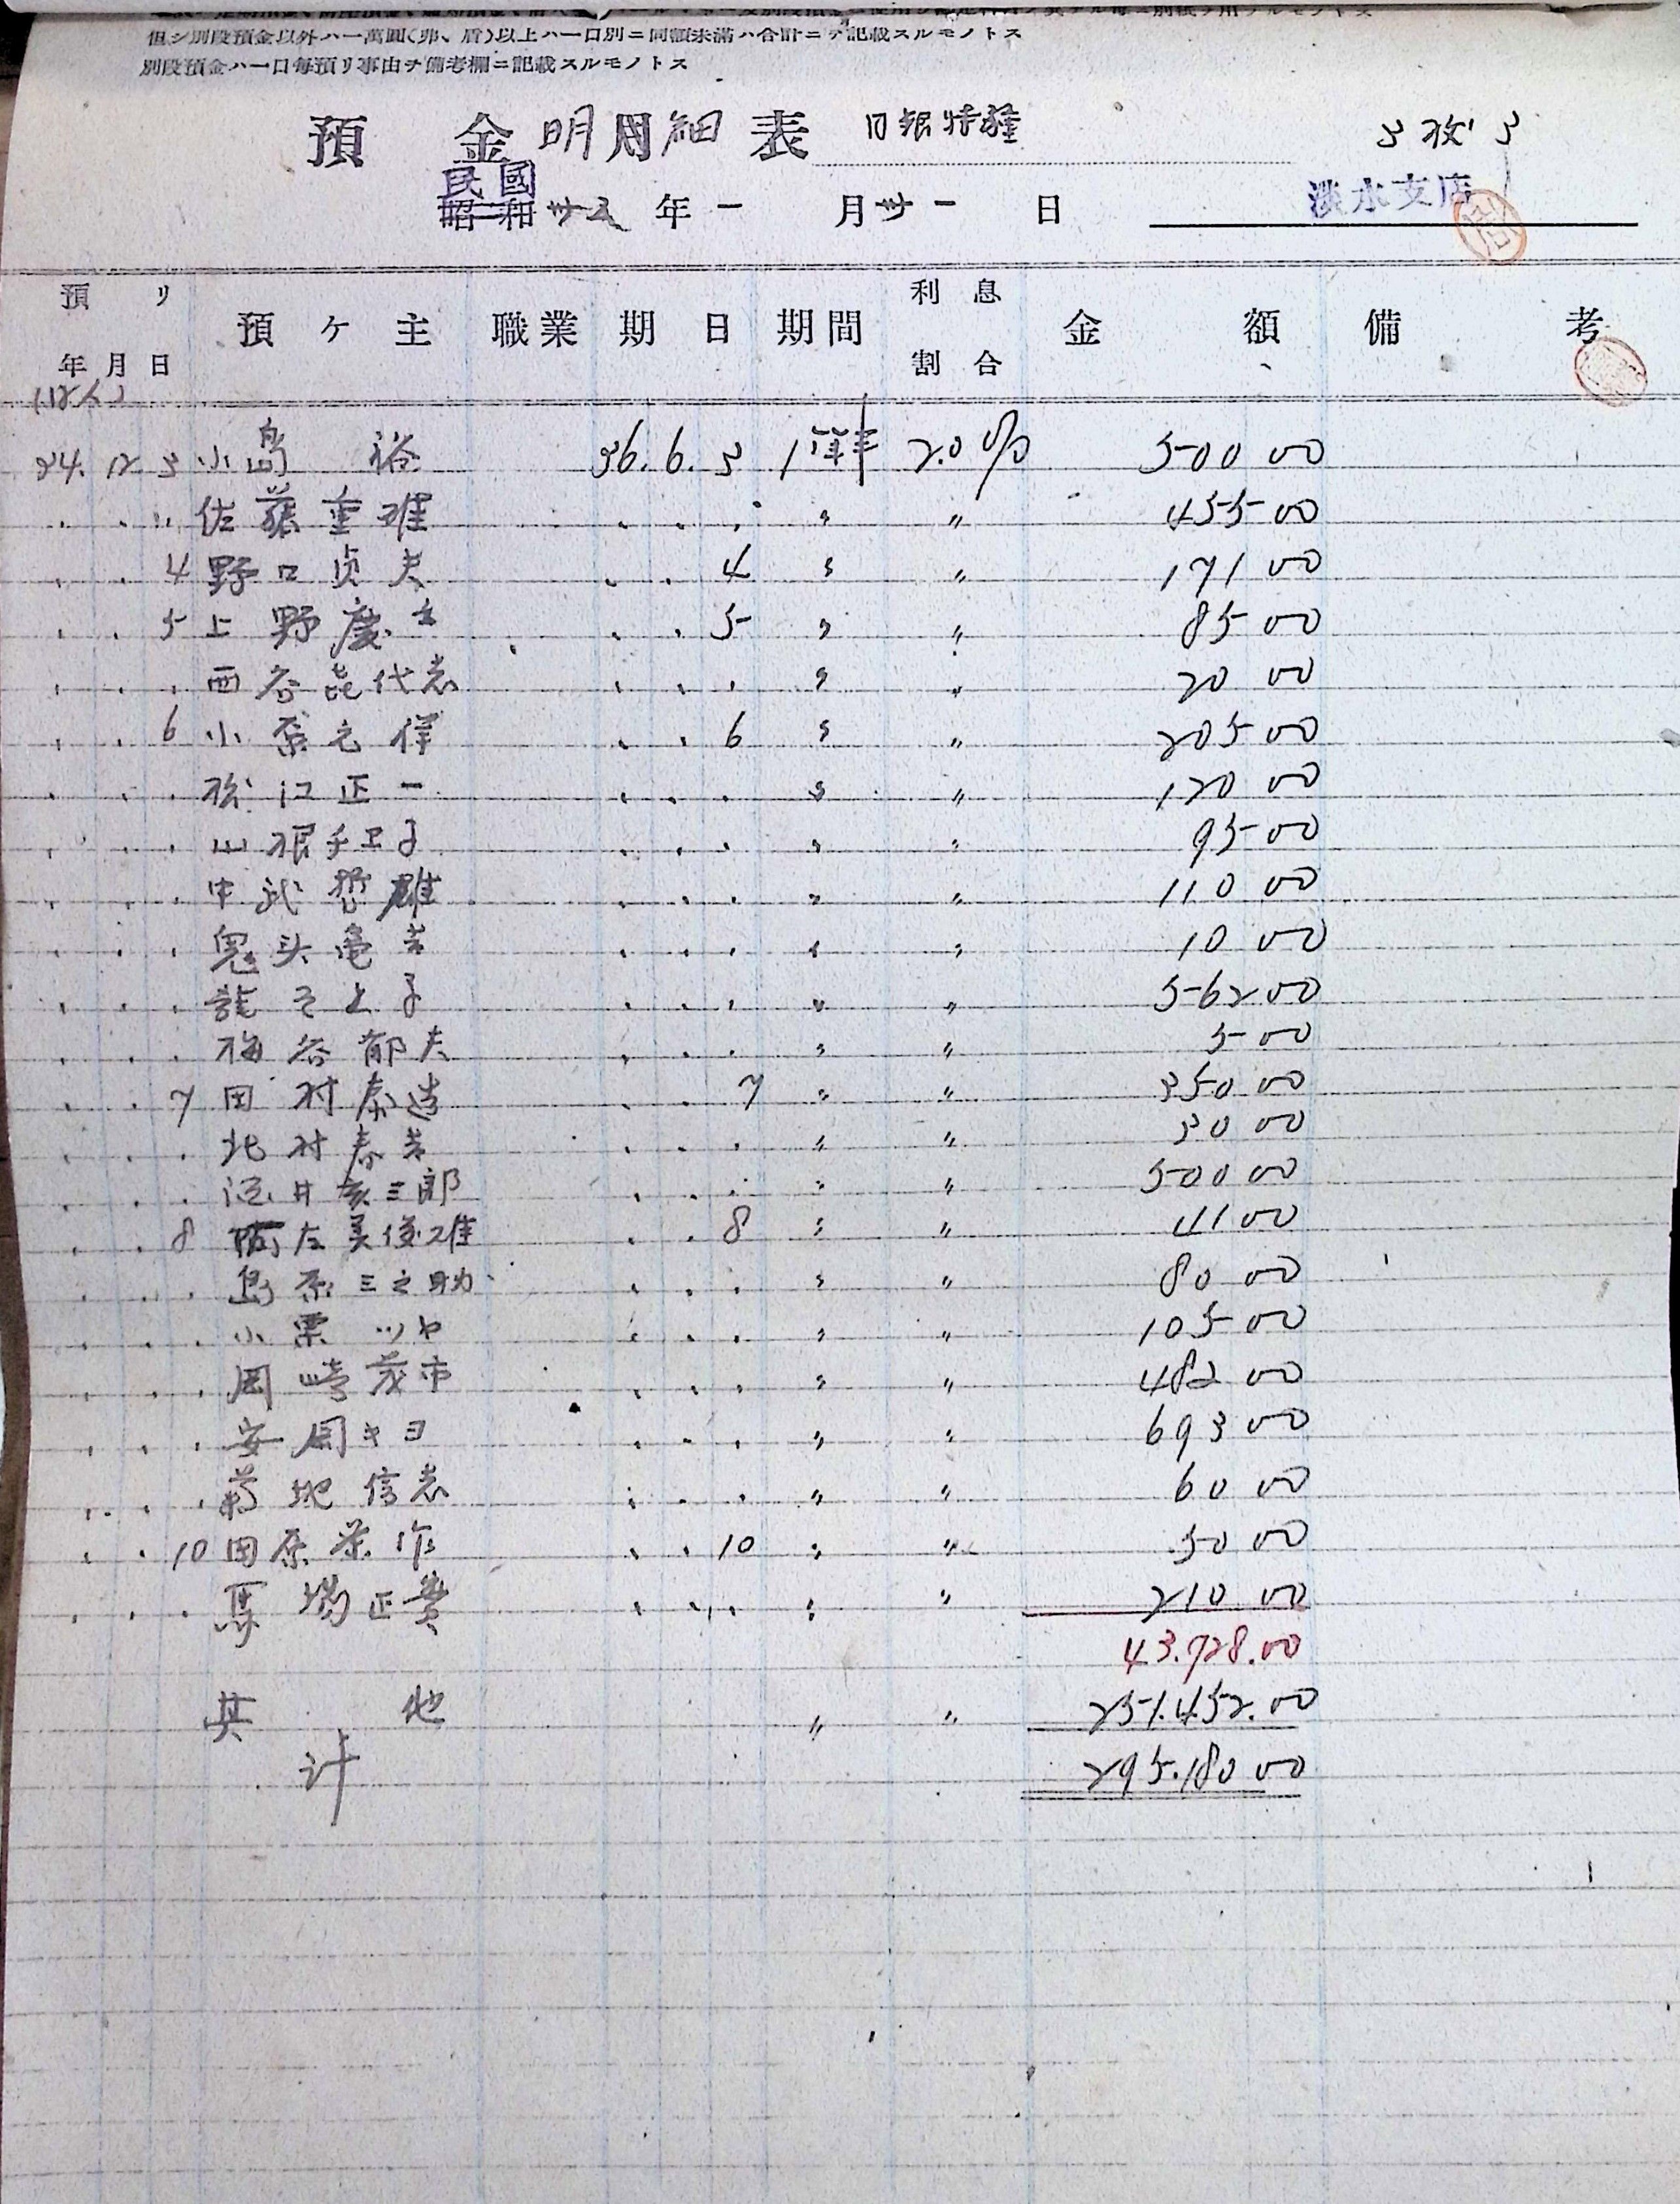 但シ別段預金以外ハ一萬圓(弗、盾)以上ハ一口別ニ同額未滿ハ合計ニテ記載スルモノトス
別段預金ハ一口毎預リ事由ヲ備考欄ニ記載スルモノトス
預金明細表 日銀特種 3枚ノ3
民國
昭和 卅五年一月卅一日 淡水支店
預リ年月日 預ケ主 職業 期日 期間 利息割合 金額 備考
24. 12 3 小島 裕 36. 6. 3 2.0% 500 00
〃 佐藤重雄 〃 〃 455 00
4 野口貞夫 4 〃 〃 171 00
5 上野慶吉 5 〃 〃 85 00
西谷喜代志 〃 〃 20 00
6 小 6 〃 〃 205 00
松江正一 〃 〃 120 00
山根チヱ子 〃 〃 95 00
中武哲雄 〃 〃 110 00
鬼头亀吉 〃 〃 10 00
龍 子 〃 〃 562 00
梅谷郁夫 〃 〃 5 00
7 田村泰造 7 〃 〃 350 00
北村春吉 〃 〃 30 00
井 三郎 〃 〃 500 00
8 阿左美俊雄 8 〃 〃 41 00
島原三之助 〃 〃 80 00
小栗ツヤ 〃 〃 105 00
岡崎茂市 〃 〃 482 00
安岡キヨ 〃 〃 693 00
菊地信志 〃 〃 60 00
10 田原 作 10 〃 〃 50 00
馬場正 〃 〃 210 00
43.728.00
其他 〃 〃 251.452.00
計 295.180 00